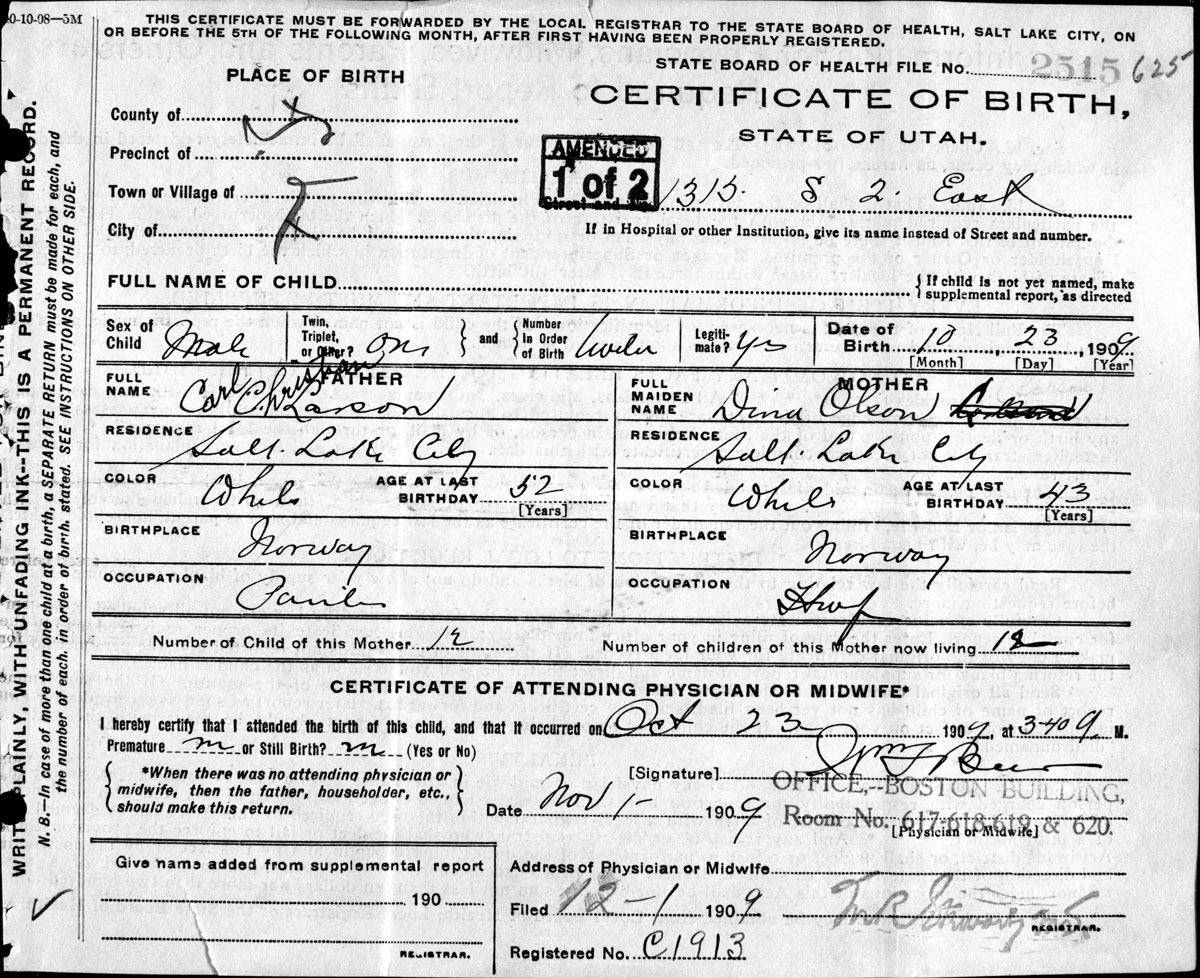 0-10-08—5M
THIS CERTIFICATE MUST BE FORWARDED BY THE LOCAL REGISTRAR TO THE STATE BOARD OF HEALTH, SALT LAKE CITY, ON
OR BEFORE THE 5TH OF THE FOLLOWING MONTH, AFTER FIRST HAVING BEEN PROPERLY REGISTERED.
STATE BOARD OF HEALTH FILE No. 2515 625
PLACE OF BIRTH
CERTIFICATE OF BIRTH,
STATE OF UTAH.
County of
Precinct of
Town or Village of
City of
AMENDED
1 of 2
Street and No. 1315. S 2. East
If in Hospital or other Institution, give its name instead of Street and number.
FULL NAME OF CHILD
If child is not yet named, make
supplemental report, as directed
Sex of Child Male
Twin, Triplet, or Other? One and Number In Order of Birth
Legitimate? Yes
Date of Birth 10, 23, 1909
[Month] [Day] [Year]
FATHER
FULL NAME Carl Christian Larson
RESIDENCE Salt Lake City
COLOR White AGE AT LAST BIRTHDAY 52
[Years]
BIRTHPLACE Norway
OCCUPATION
MOTHER
FULL MAIDEN NAME Dina Olson
RESIDENCE Salt Lake City
COLOR White AGE AT LAST BIRTHDAY 43
[Years]
BIRTHPLACE Norway
OCCUPATION
Number of Child of this Mother 12
Number of children of this Mother now living 12
CERTIFICATE OF ATTENDING PHYSICIAN OR MIDWIFE*
I hereby certify that I attended the birth of this child, and that it occurred on Oct 23 1909, at 3-40 M.
Premature or Still Birth? (Yes or No)
*When there was no attending physician or
midwife, then the father, householder, etc.,
should make this return.
[Signature]
OFFICE,--BOSTON BUILDING,
Room No. 617-618-619 & 620.
Date Nov 1- 1909
[Physician or Midwife]
Give name added from supplemental report
190
REGISTRAR.
Address of Physician or Midwife
Filed 12-1 1909
REGISTRAR.
Registered No. C1913
WRITE PLAINLY, WITH UNFADING INK--THIS IS A PERMANENT RECORD.
N. B.—In case of more than one child at a birth, a SEPARATE RETURN must be made for each, and
the number of each, in order of birth, stated. SEE INSTRUCTIONS ON OTHER SIDE.